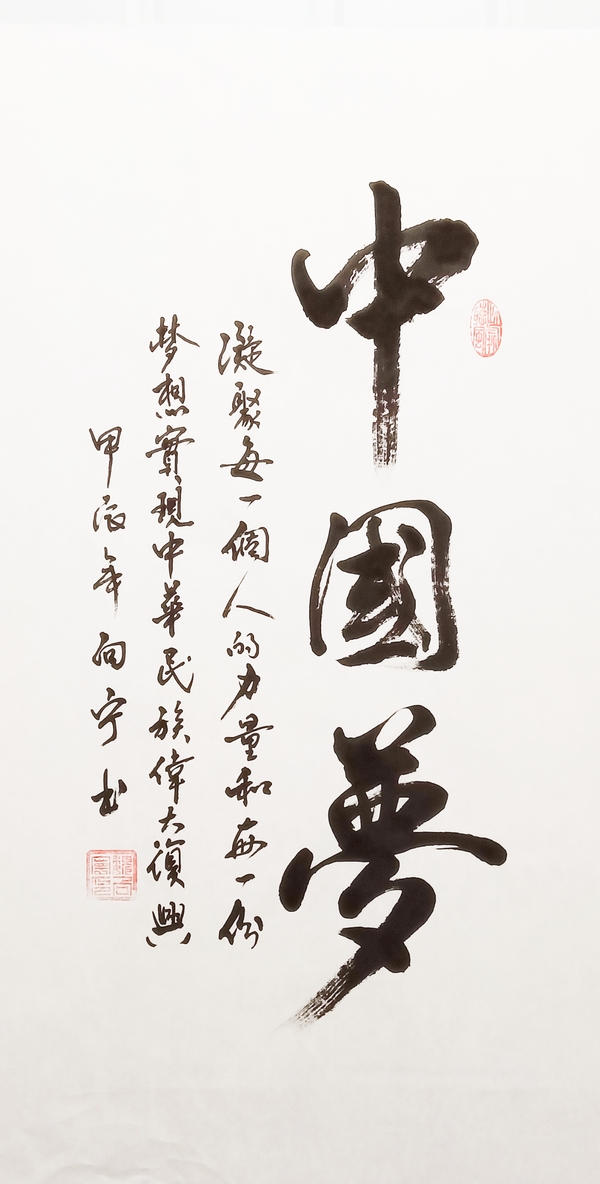 中國夢
凝聚每一個人的力量和每一份
梦想實現中華民族偉大復興
甲辰年向宁书